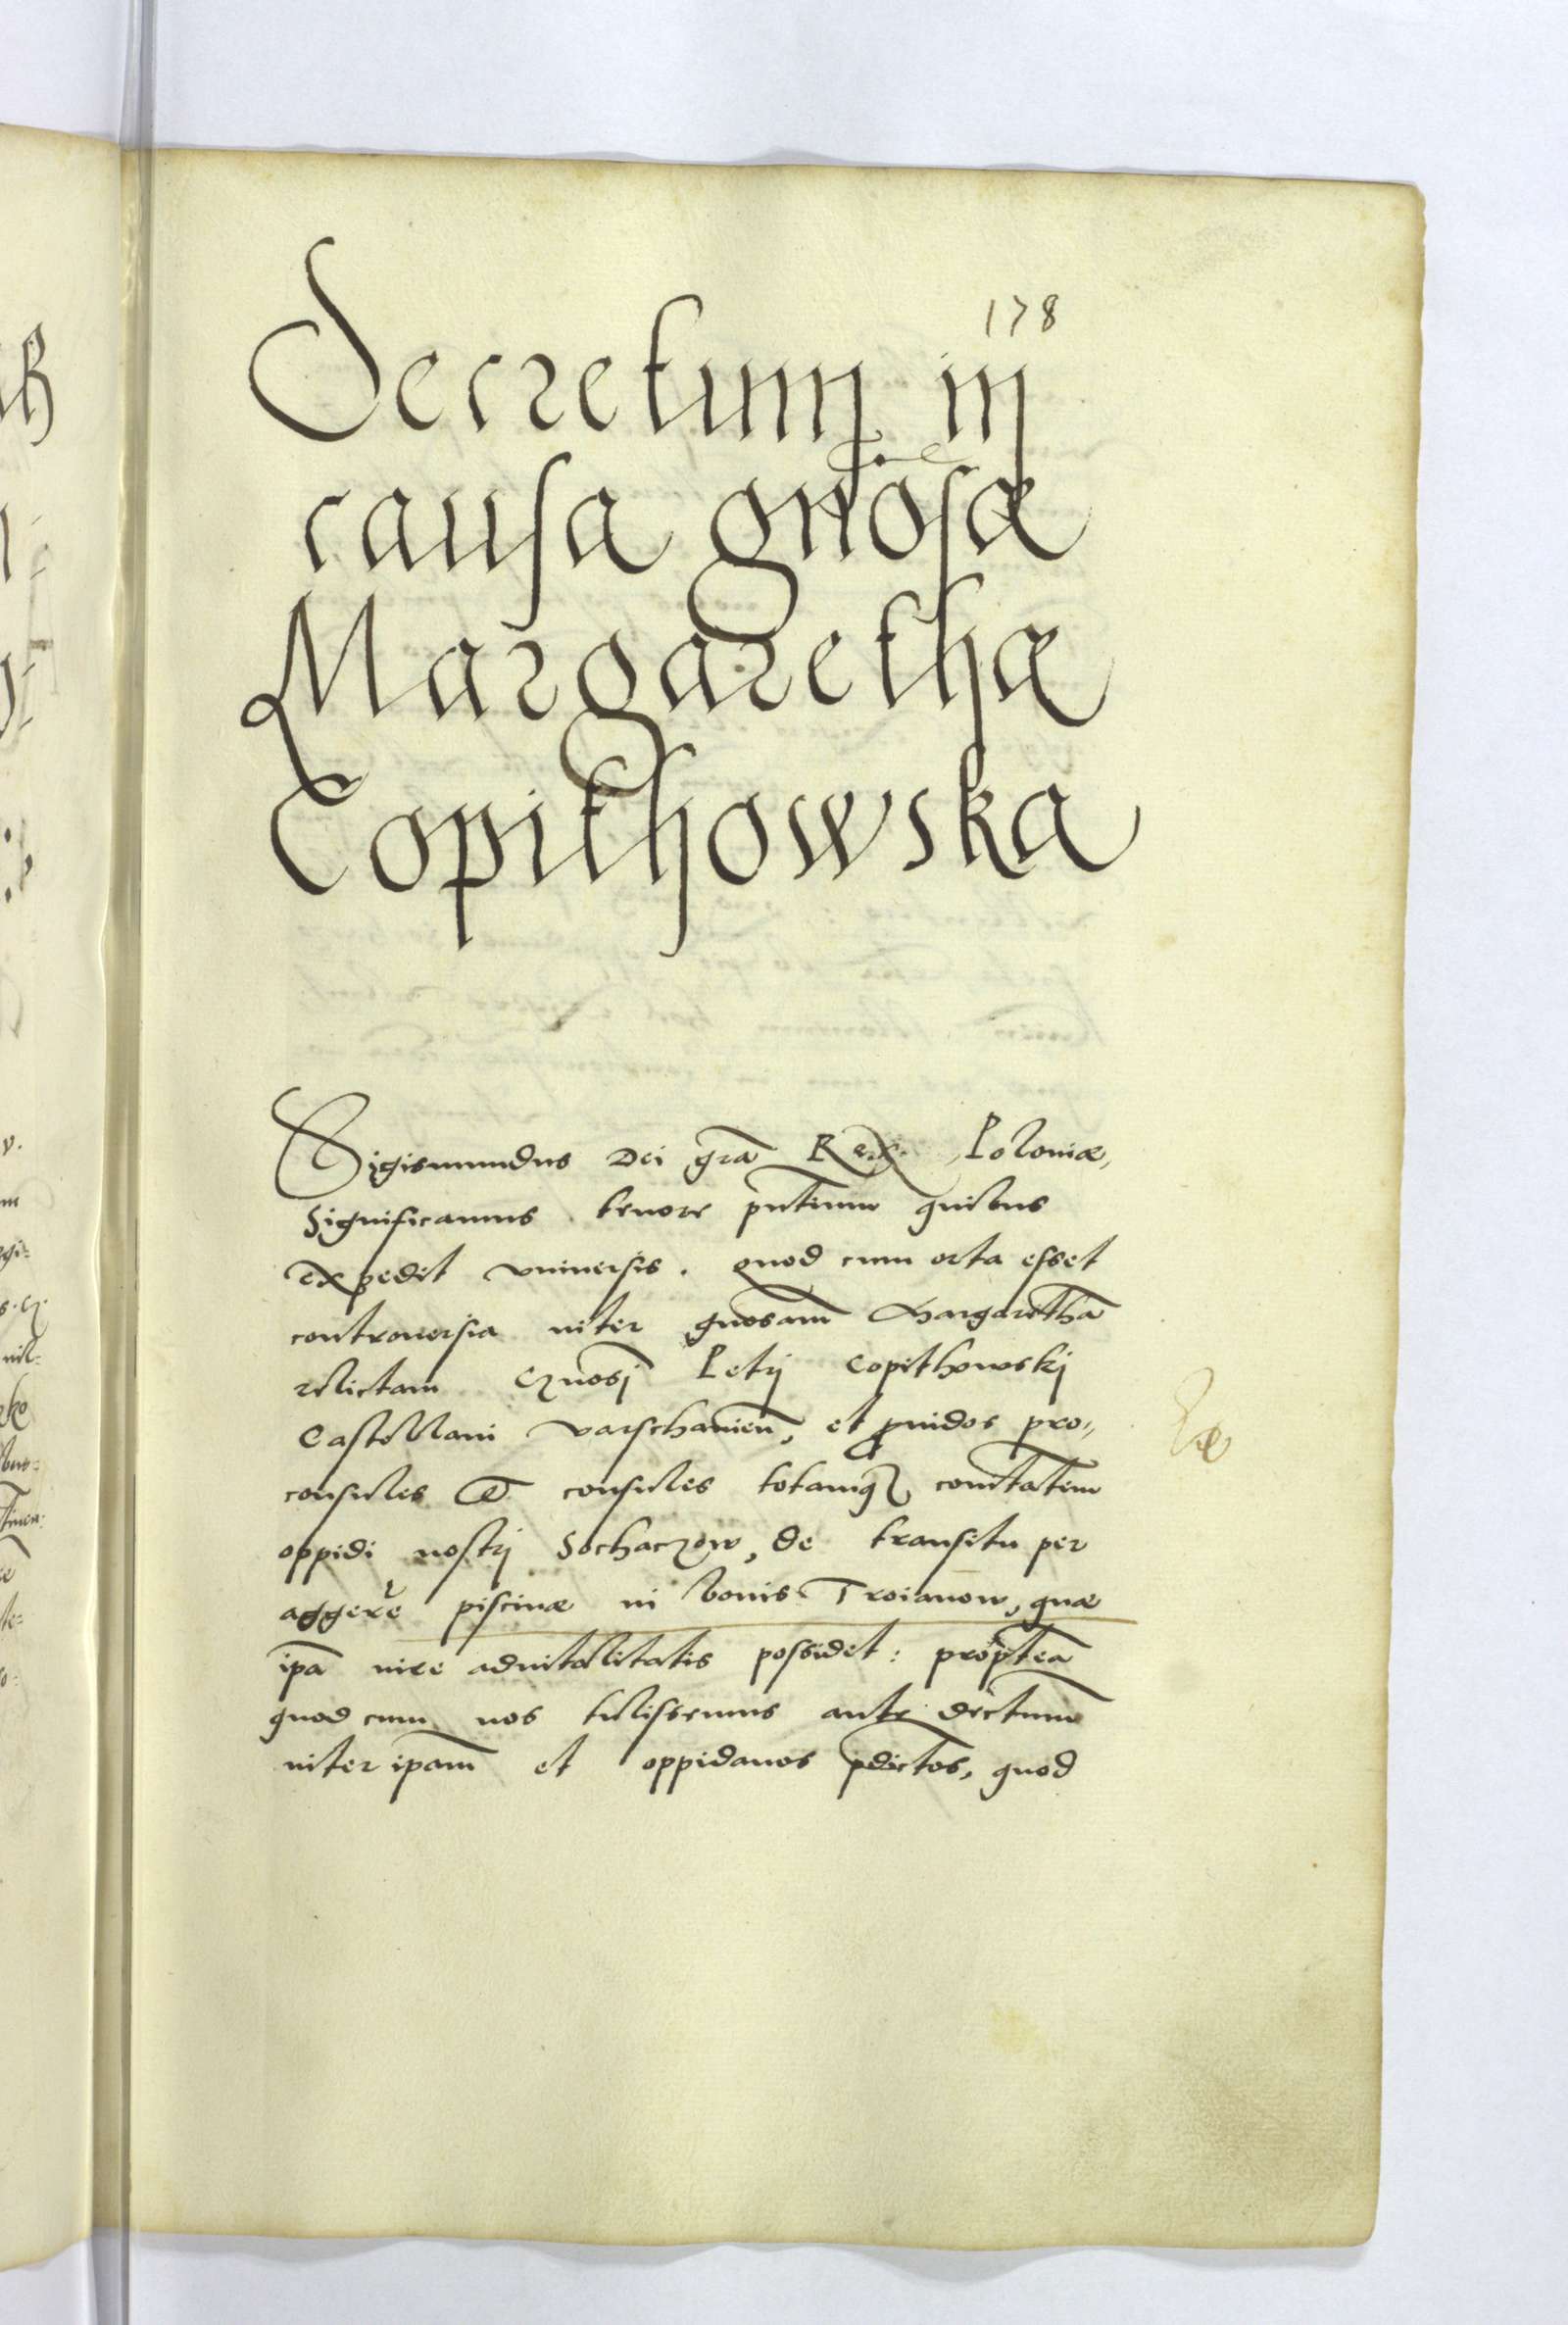 178
Decretum in
causa gnosæ
Margarethæ
Copithowska
Sigismundus Dei gra Rex Poloniæ,
Significamus tenore pntium quibus
expedit vniuersis. quod cum orta esset
controuersia inter gnosam Margaretha
relictam gnosj Petrj Copithowskj
Castellani varschanien, et puidos pro„
consules et consules totamq comitatem
oppidi nostrj Sochaczow, de transitu per
aggere piscinæ in bonis Troianow, quæ
ipa iure aduitalitatis possidet: proptea
quod cum nos tulissemus ante dectum
inter ipam et oppidanos pdictos, quod